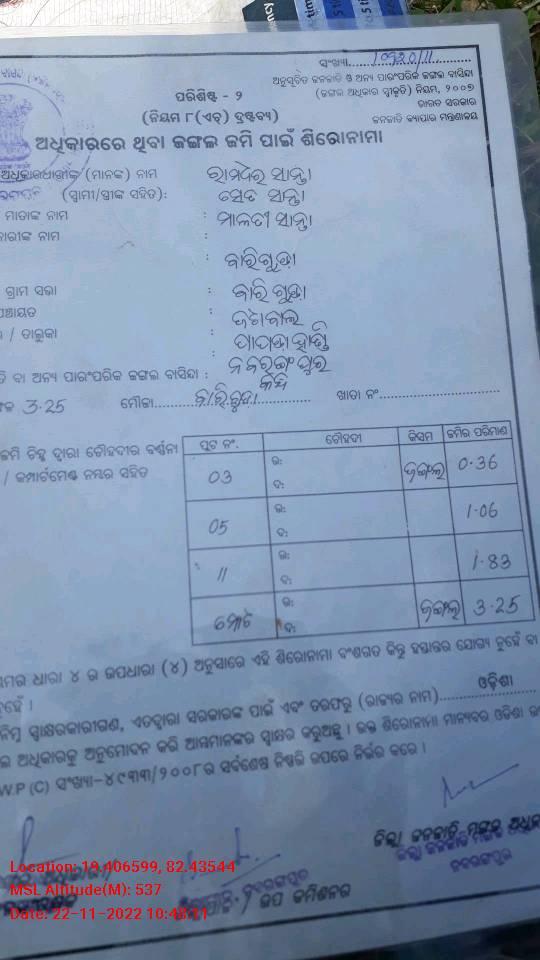 ସଂଖ୍ୟା
ଅନୁସୂଚିତ ଜନଜାତି ଓ ଅନ୍ୟ ପାରଂପରିକ ଜଙ୍ଗଲ ବାସିନ୍ଦା
(ଜଙ୍ଗଲ ଅଧିକାର ସ୍ବୀକୃତି) ନିୟମ, ୨୦୦୭
ଭାରତ ସରକାର
ଜନଜାତି ବ୍ୟାପାର ମନ୍ତ୍ରଣାଳୟ
ପରିଶିଷ୍ଟ - ୨
(ନିୟମ ୮(ଏଚ୍) ଦ୍ରଷ୍ଟବ୍ୟ)
ଅଧିକାରରେ ଥିବା ଜଙ୍ଗଲ ଜମି ପାଇଁ ଶିରୋନାମା
ଅଧିକାରଧାରୀଙ୍କ (ମାନଙ୍କ) ନାମ ରାମଦେର ସାନ୍ତା
(ସ୍ବାମୀ/ସ୍ତ୍ରୀଙ୍କ ସହିତ): ସେତ ସାନ୍ତା
ମାତାଙ୍କ ନାମ : ମାଳତୀ ସାନ୍ତା
ନାମ :
: ବାରିଗୁଡ଼ା
ଗ୍ରାମ ସଭା : ବାରିଗୁଡ଼ା
ପଞ୍ଚାୟତ :
/ ତାଲୁକା : ପାପଡ଼ାହାଣ୍ଡି
: ନବରଙ୍ଗପୁର
ବା ଅନ୍ୟ ପାରଂପରିକ ଜଙ୍ଗଲ ବାସିନ୍ଦା :
3.25 ମୌଜା ବାରିଗୁଡ଼ା ଖାତା ନଂ
ଜମି ଚିହ୍ନ ଦ୍ୱାରା ଚୌହଦୀର ବର୍ଣ୍ଣନା
/ କମ୍ପାର୍ଟମେଣ୍ଟ ନମ୍ବର ସହିତ
ପ୍ଲଟ ନଂ. ଚୌହଦୀ କିସମ ଜମିର ପରିମାଣ
03 ଉ: ଦ: ଜଙ୍ଗଲ 0.36
05 ଉ: ଦ: 1.06
11 ଉ: ଦ: 1.83
ମୋଟ ଉ: ଦ: ଜଙ୍ଗଲ 3.25
ଧାରା ୪ ର ଉପଧାରା (୪) ଅନୁସାରେ ଏହି ଶିରୋନାମା ବଂଶଗତ କିନ୍ତୁ ହସ୍ତାନ୍ତର ଯୋଗ୍ୟ ନୁହେଁ ବା
ନୁହେଁ ।
ନିମ୍ନ ସ୍ୱାକ୍ଷରକାରୀଗଣ, ଏତଦ୍ୱାରା ସରକାରଙ୍କ ପାଇଁ ଏବଂ ତରଫରୁ (ରାଜ୍ୟର ନାମ) ଓଡ଼ିଶା
ଅଧିକାରକୁ ଅନୁମୋଦନ କରି ଆମ୍ଭମାନଙ୍କର ସ୍ୱାକ୍ଷର କରୁଅଛୁ । ଉକ୍ତ ଶିରୋନାମା ମାନ୍ୟବର ଓଡିଶା
W.P (C) ସଂଖ୍ୟା-୪୯୩୩/୨୦୦୮ର ସର୍ବଶେଷ ନିଷ୍ପତ୍ତି ଉପରେ ନିର୍ଭର କରେ ।
ଜିଲ୍ଲା ଜନଜାତି ମଙ୍ଗଳ
ନବରଙ୍ଗପୁର
Location: 19.406599, 82.43544
MSL Altitude(M): 537
Date: 22-11-2022 10:48:11